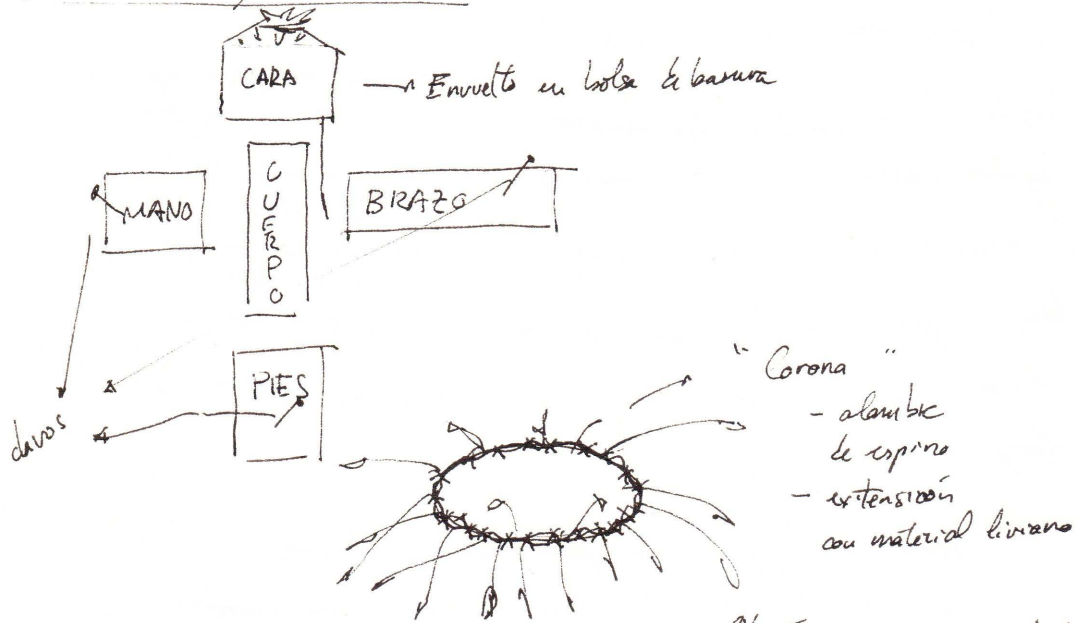 CARA
Envuelto en bolsa de basura
CUERPO
MANO
BRAZO
PIES
clavos
"Corona"
- alambre
de espino
- extensión
con material liviano